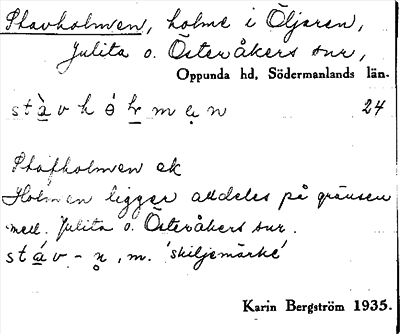 Stavholmen, holme i Öljaren,
Julita o. Österåkers snr,
Oppunda hd, Södermanlands län.
stàvhólmen 24
Stafholmen ek
Holmen ligger alldeles på gränsen
mell. Julita o. Österåkers snr.
stáv - n, m. 'skiljemärke'
Karin Bergström 1935.